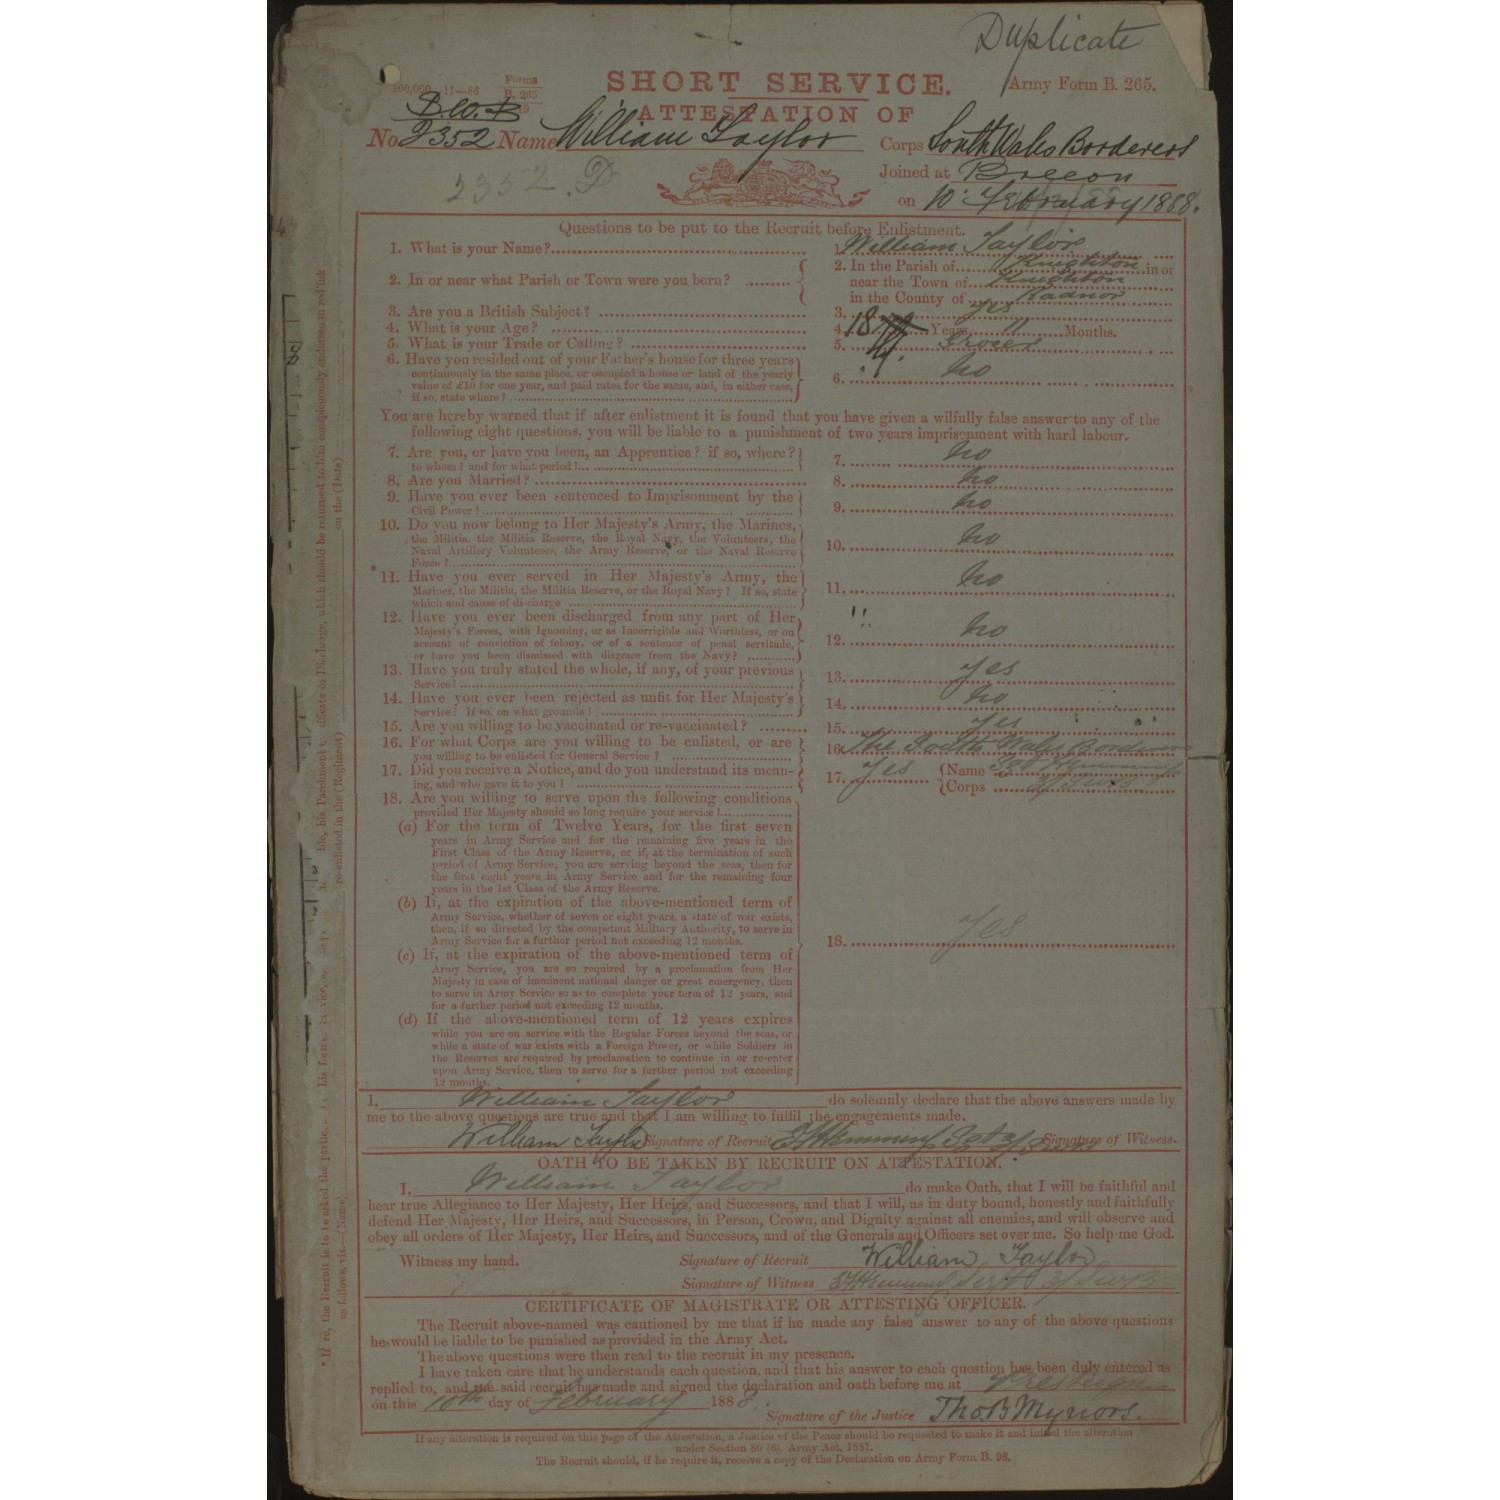 Duplicate
100,000 11—86 Forms B. 265 19
SHORT SERVICE. Army Form B. 265.
ATTESTATION OF
No. 2352 Name William Taylor Corps South Wales Borderers
2352 Joined at Brecon
on 10 February 1888.
Questions to be put to the Recruit before Enlistment.
1. What is your Name? 1. William Taylor
2. In or near what Parish or Town were you born? 2. In the Parish of Knighton in or
near the Town of Knighton
in the County of Radnor
3. Are you a British Subject? 3. Yes
4. What is your Age? 4. 18 Years 11 Months.
5. What is your Trade or Calling? 5. Grocer
6. Have you resided out of your Father's house for three years
continuously in the same place, or occupied a house or land of the yearly
value of £10 for one year, and paid rates for the same, and, in either case,
if so, state where? 6. No
You are hereby warned that if after enlistment it is found that you have given a wilfully false answer to any of the
following eight questions, you will be liable to a punishment of two years imprisonment with hard labour.
7. Are you, or have you been, an Apprentice? if so, where?
to whom? and for what period? 7. No
8. Are you Married? 8. No
9. Have you ever been sentenced to Imprisonment by the
Civil Power? 9. No
10. Do you now belong to Her Majesty's Army, the Marines,
the Militia, the Militia Reserve, the Royal Navy, the Volunteers, the
Naval Artillery Volunteers, the Army Reserve, or the Naval Reserve
Force? 10. No
*11. Have you ever served in Her Majesty's Army, the
Marines, the Militia, the Militia Reserve, or the Royal Navy? If so, state
which and cause of discharge 11. No
12. Have you ever been discharged from any part of Her
Majesty's Forces, with Ignominy, or as Incorrigible and Worthless, or on
account of conviction of felony, or of a sentence of penal servitude,
or have you been dismissed with disgrace from the Navy? 12. No
13. Have you truly stated the whole, if any, of your previous
Service? 13. Yes
14. Have you ever been rejected as unfit for Her Majesty's
Service? If so, on what grounds? 14. No
15. Are you willing to be vaccinated or re-vaccinated? 15. Yes
16. For what Corps are you willing to be enlisted, or are
you willing to be enlisted for General Service? 16. The South Wales Borderers
17. Did you receive a Notice, and do you understand its mean-
ing, and who gave it to you? 17. Yes Name Sgt Hemming
Corps
18. Are you willing to serve upon the following conditions
provided Her Majesty should so long require your service?
(a) For the term of Twelve Years, for the first seven
years in Army Service and for the remaining five years in the
First Class of the Army Reserve, or if, at the termination of such
period of Army Service, you are serving beyond the seas, then for
the first eight years in Army Service and for the remaining four
years in the 1st Class of the Army Reserve.
(b) If, at the expiration of the above-mentioned term of
Army Service, whether of seven or eight years, a state of war exists,
then, if so directed by the competent Military Authority, to serve in
Army Service for a further period not exceeding 12 months.
18. Yes
(c) If, at the expiration of the above-mentioned term of
Army Service, you are so required by a proclamation from Her
Majesty in case of imminent national danger or great emergency, then
to serve in Army Service so as to complete your term of 12 years, and
for a further period not exceeding 12 months.
(d) If the above-mentioned term of 12 years expires
while you are on service with the Regular Forces beyond the seas, or
while a state of war exists with a Foreign Power, or while Soldiers in
the Reserves are required by proclamation to continue in or re-enter
upon Army Service, then to serve for a further period not exceeding
12 months.
I, William Taylor do solemnly declare that the above answers made by
me to the above questions are true and that I am willing to fulfil the engagements made.
William Taylor Signature of Recruit Hemming Sgt Signature of Witness.
OATH TO BE TAKEN BY RECRUIT ON ATTESTATION.
I, William Taylor do make Oath, that I will be faithful and
bear true Allegiance to Her Majesty, Her Heirs, and Successors, and that I will, as in duty bound, honestly and faithfully
defend Her Majesty, Her Heirs, and Successors, in Person, Crown, and Dignity against all enemies, and will observe and
obey all orders of Her Majesty, Her Heirs, and Successors, and of the Generals and Officers set over me. So help me God.
Witness my hand. Signature of Recruit William Taylor
Signature of Witness Hemming Sergt
CERTIFICATE OF MAGISTRATE OR ATTESTING OFFICER.
The Recruit above-named was cautioned by me that if he made any false answer to any of the above questions
he would be liable to be punished as provided in the Army Act.
The above questions were then read to the recruit in my presence.
I have taken care that he understands each question, and that his answer to each question has been duly entered as
replied to, and the said recruit has made and signed the declaration and oath before me at Presteigne
on this 10th day of February 1888.
Signature of the Justice Tho B Mynors.
If any alteration is required on this page of the Attestation, a Justice of the Peace should be requested to make it and initial the alteration
under Section 80 (6), Army Act, 1881.
The Recruit should, if he require it, receive a copy of the Declaration on Army Form B. 98.